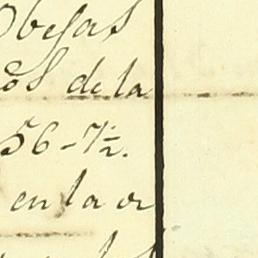 Obejas
os de la
56-7½.
en la or